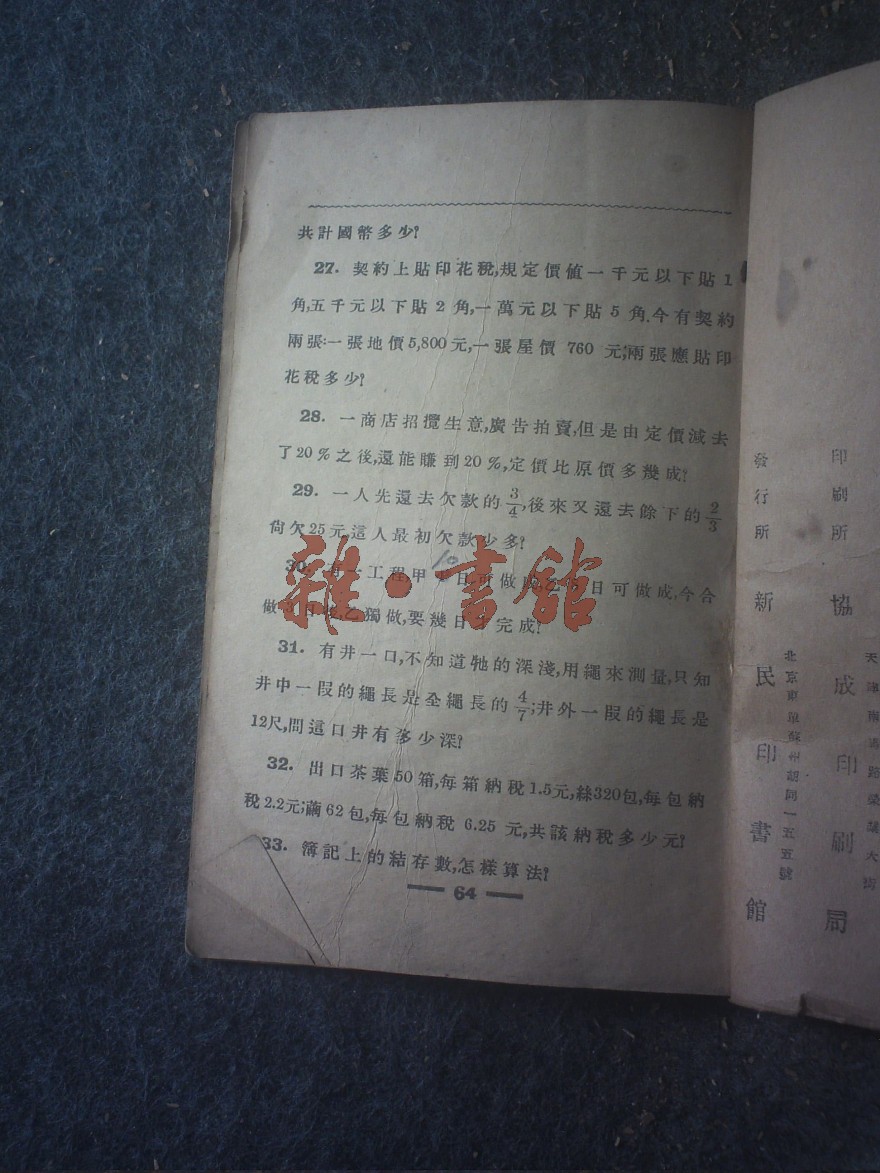 共計國幣多少?
27. 契約上貼印花稅,規定價值一千元以下貼 1
角,五千元以下貼 2 角,一萬元以下貼 5 角.今有契約
兩張:一張地價5,800元,一張屋價 760 元;兩張應貼印
花稅多少?
28. 一商店招攬生意,廣告拍賣,但是由定價減去
了20%之後,還能賺到20%,定價比原價多幾成?
29. 一人先還去欠款的3/4,後來又還去餘下的2/3
尙欠25元,這人最初欠款少多?
30. 有一工程甲 10 日可做成,乙 日可做成,今合
做 3 日 乙獨做,要幾日 完成?
31. 有井一口,不知道牠的深淺,用繩來測量,只知
井中一段的繩長是全繩長的4/7;井外一段的繩長是
12尺,問這口井有多少深?
32. 出口茶葉50箱,每箱納稅1.5元,絲320包,每包納
稅2.2元;繭62包,每包納稅 6.25 元,共該納稅多少元?
33. 簿記上的結存數,怎樣算法?
64
雜·書館
印刷所 協成印刷局
發行所 新民印書館